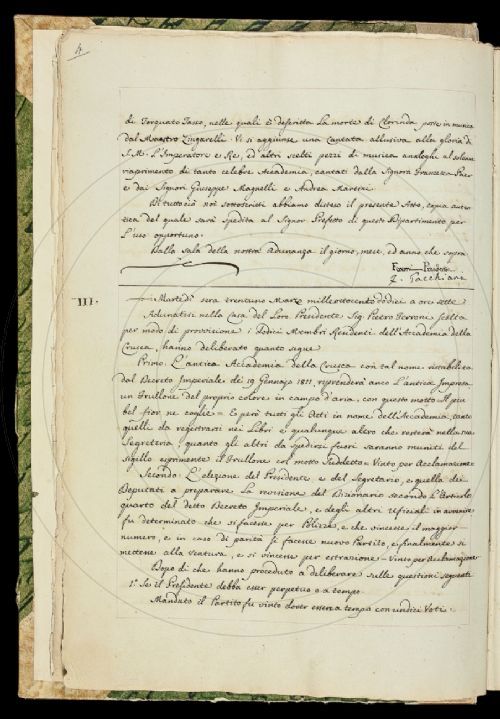 4.
di Torquato Tasso, nelle quali è descritta la morte di Clorinda poste in musica
dal Maestro Zingarelli. Vi si aggiunse una Cantata allusiva alla gloria di
S. M. L'Imperatore e Re, ed altri scelti pezzi di musica analoghi al solenne
riaprimento di tanto celebre Accademia, cantati dalla Signora Francesca Paer
e dai Signori Giuseppe Magnelli e Andrea Martini.
Di tutto ciò noi sottoscritti abbiamo disteso il presente Atto, copia auten
tica del quale sarà spedita al Signor Prefetto di questo Dipartimento per
l'uso opportuno.
Dalla Sala della nostra Adunanza il giorno, mese, ed anno, che sopra
Ferroni Presidente
Z. Pacchiani
III.
Martedì sera trentuno Marzo milleottocento dodici a ore sette
Adunatisi nella Casa del Loro Presidente Sig. Pietro Ferroni scelta
per modo di provvisione i dodici Membri Residenti dell'Accademia della
Crusca, hanno deliberato quanto segue
Primo. L'antica Accademia della Crusca con tal nome ristabilita
dal Decreto Imperiale de' 19 Gennajo 1811, riprenderà anco l'antica Impresa
un Frullone del proprio colore in campo d'aria, con questo motto Il più
bel fior ne coglie = E però tutti gli Atti in nome dell'Accademia, tanto
quelli da registrarsi nei Libri e qualunque altro che resterà nella sua
Segreteria, quanto gli altri da spedirsi fuori saranno muniti del
sigillo esprimente il Frullone col motto suddetto = Vinto per Acclamazione
Secondo. L'elezione del Presidente e del Segretario, e quella dei
Deputati a preparare la revisione del Dizionario secondo l'Articolo
quarto del detto Decreto Imperiale, e degli altri ufiziali in avvenire
fu determinato che si facesse per Polizze, e che vincesse il maggior
numero, e in caso di parità si facesse nuovo Partito, e finalmente si
mettesse alla ventura, e si vincesse per estrazione = Vinto per Acclamazione
Dopo di che hanno proceduto a deliberare sulle questioni seguenti
1.º Se il Presidente debba esser perpetuo o a tempo
Mandato il Partito fu vinto dover essere a tempo con undici Voti.